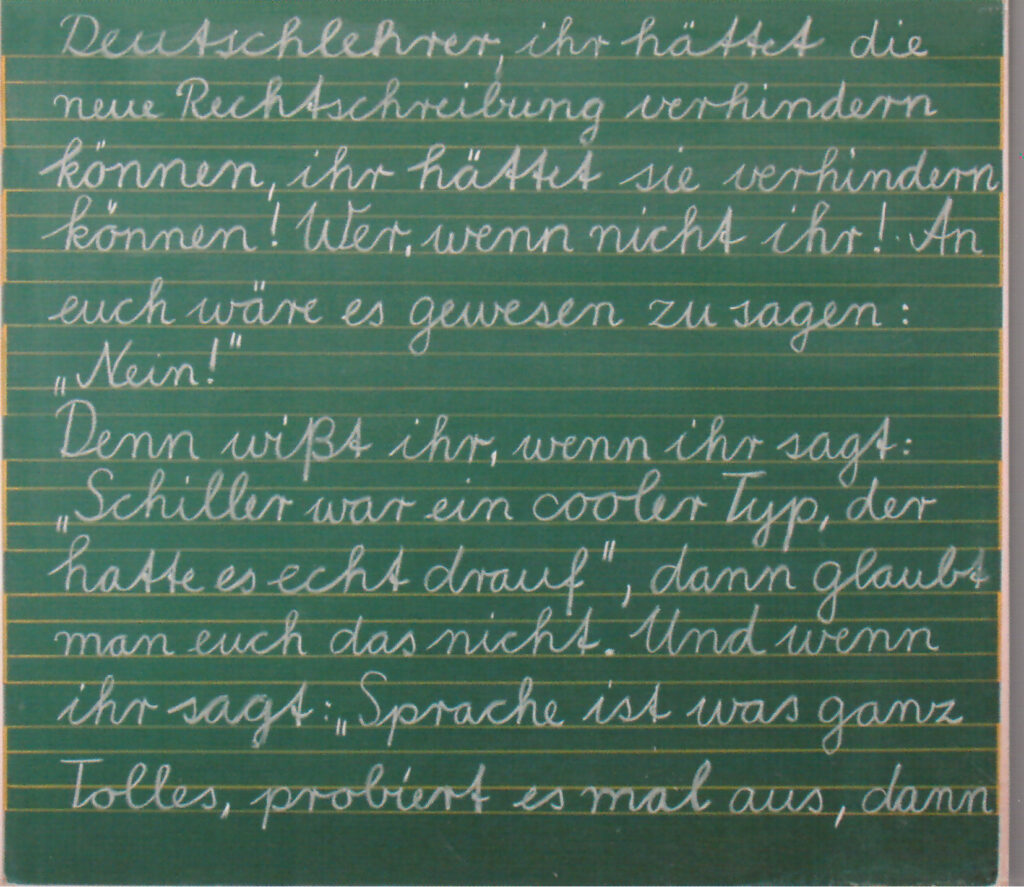 Deutschlehrer, ihr hättet die
neue Rechtschreibung verhindern
können, ihr hättet sie verhindern
können! Wer, wenn nicht ihr! An
euch wäre es gewesen zu sagen:
„Nein!"
Denn wißt ihr, wenn ihr sagt:
„Schiller war ein cooler Typ, der
hatte es echt drauf", dann glaubt
man euch das nicht. Und wenn
ihr sagt: „Sprache ist was ganz
Tolles, probiert es mal aus, dann